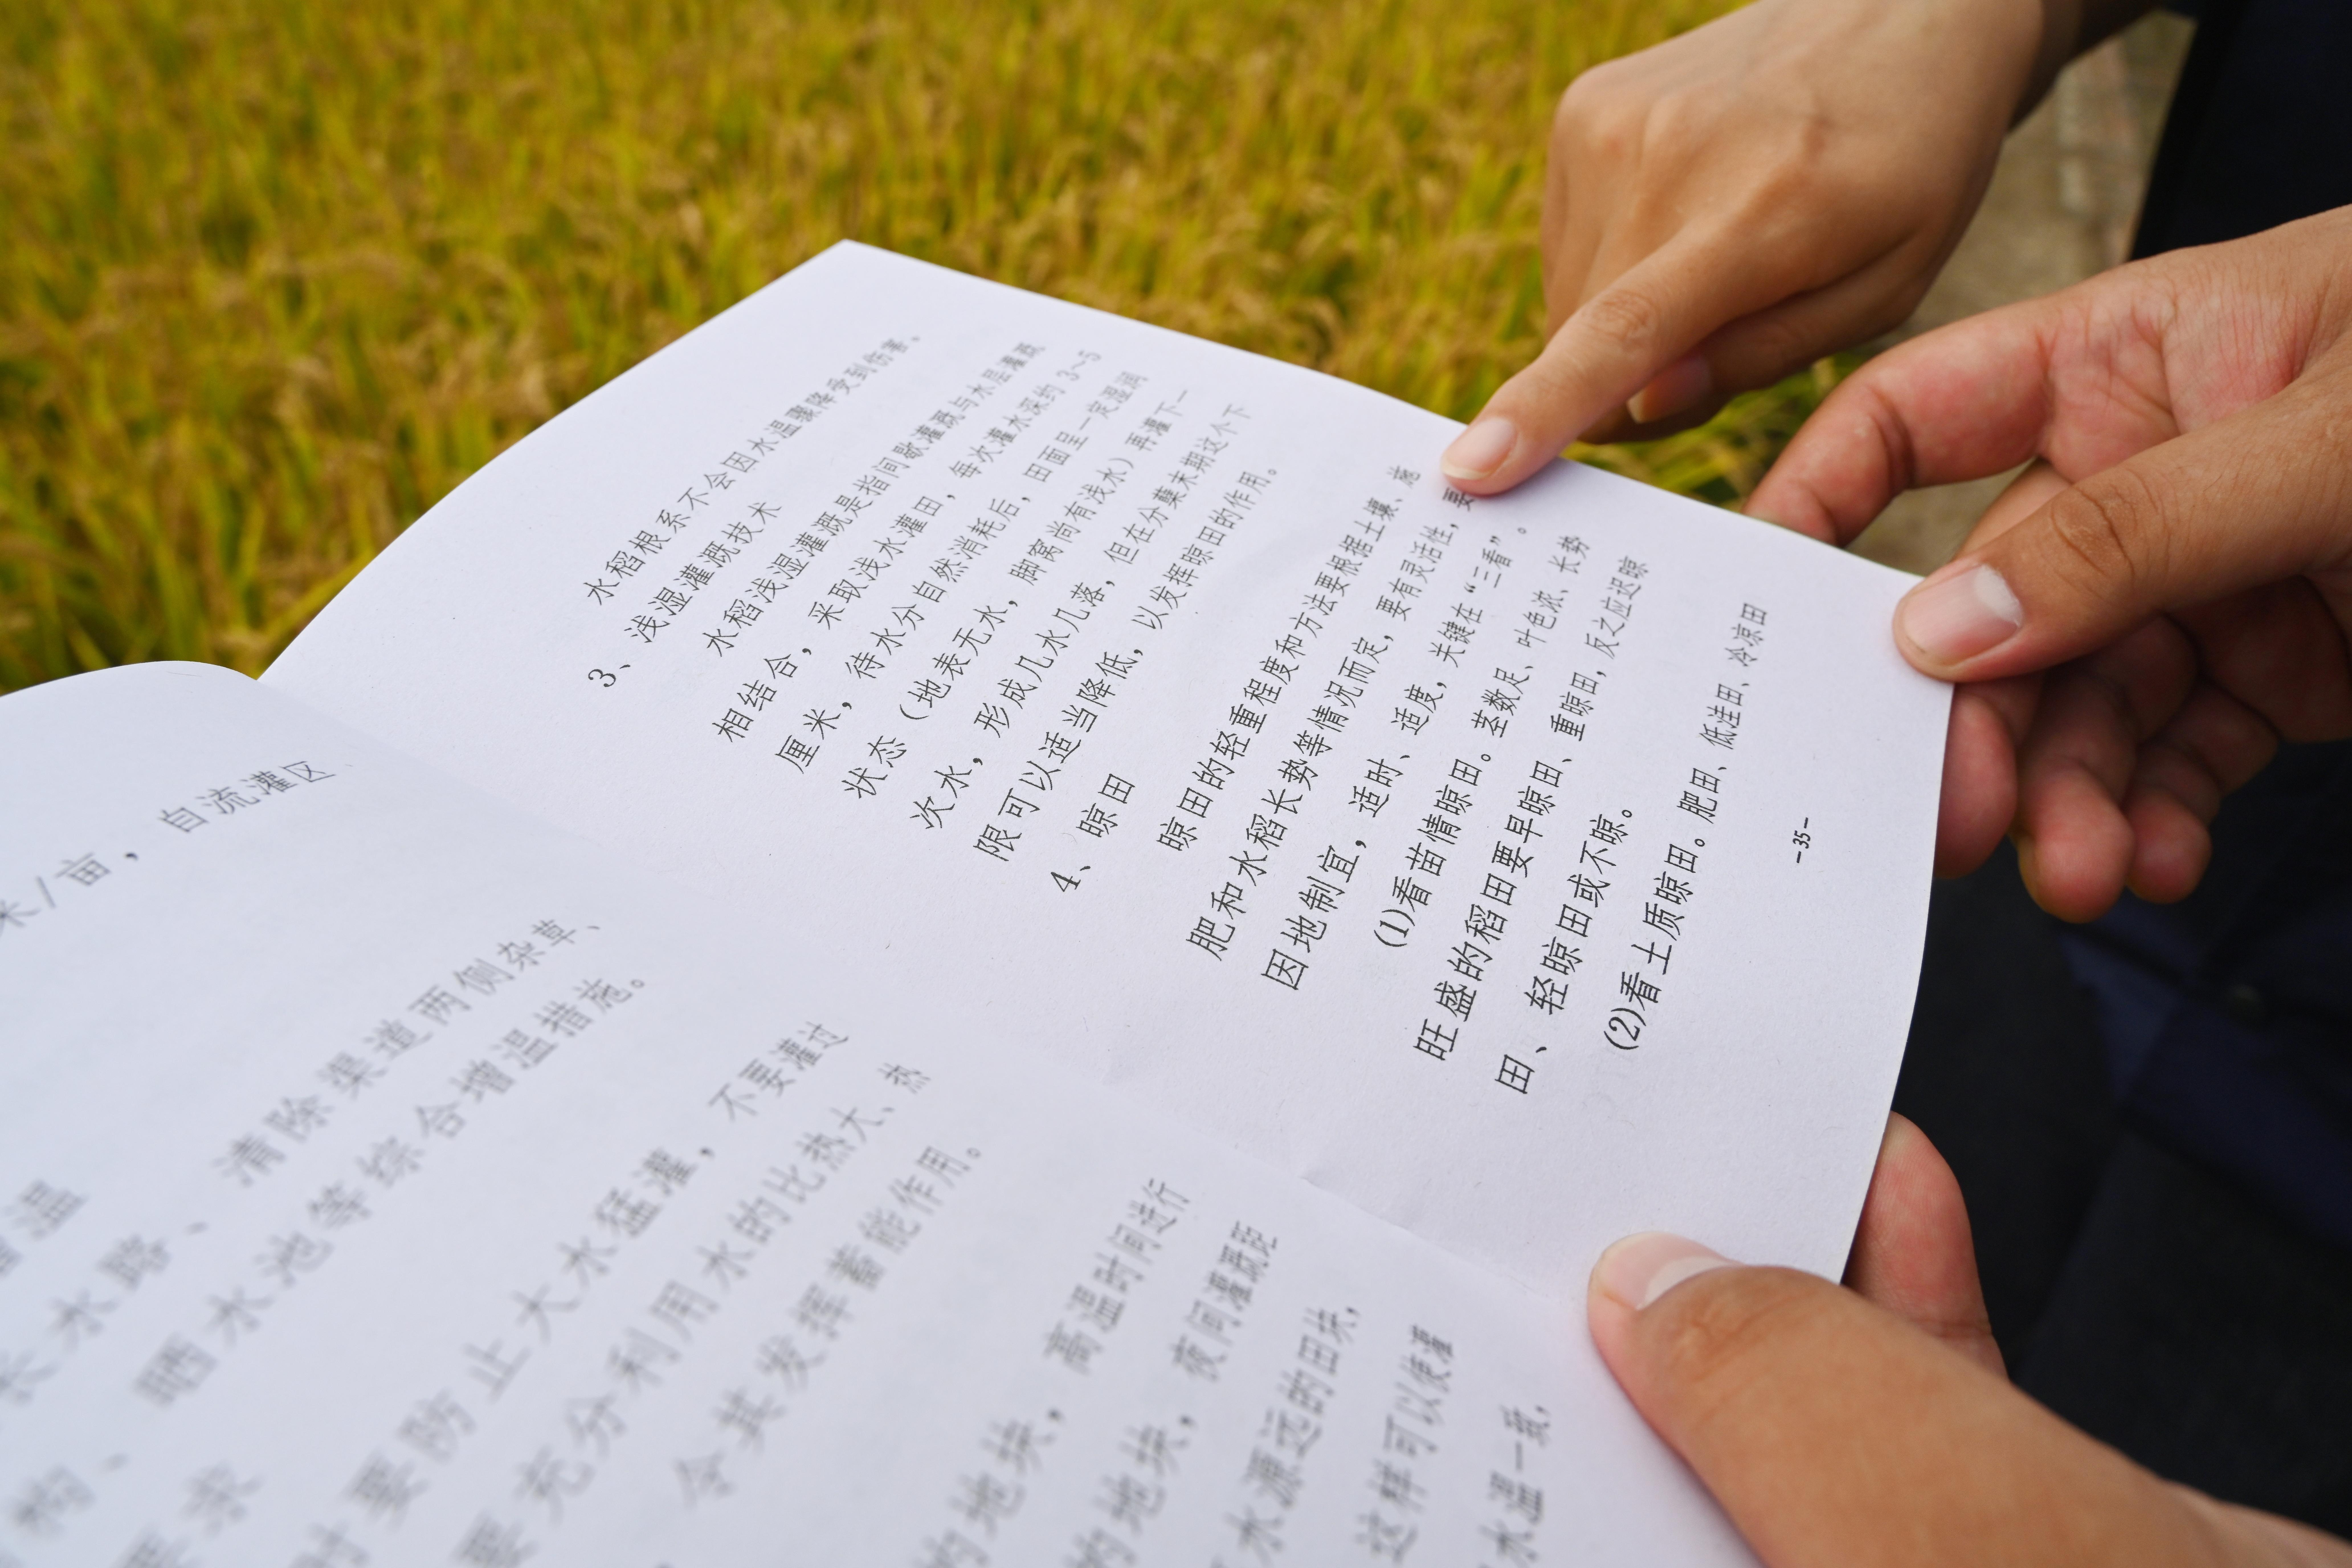 米/亩，自流灌区、
增温
长水路、清除渠道两侧杂草、
晒水池等综合增温措施。
要求
时要防止大水猛灌，不要灌过
要充分利用水的比热大、热
令其发挥蓄能作用。
的地块，高温时间进行
的地块，夜间灌溉距
水源远的田块，
这样可以使灌
水温一致，
水稻根系不会因水温骤降受到伤害。
3、浅湿灌溉技术
水稻浅湿灌溉是指间歇灌溉与水层灌溉
相结合，采取浅水灌田，每次灌水深约 3~5
厘米，待水分自然消耗后，田面呈一定湿润
状态（地表无水，脚窝尚有浅水）再灌下一
次水，形成几水几落，但在分蘖末期这个下
限可以适当降低，以发挥晾田的作用。
4、晾田
晾田的轻重程度和方法要根据土壤、施
肥和水稻长势等情况而定，要有灵活性，要
因地制宜，适时、适度，关键在“三看”。
(1)看苗情晾田。茎数足、叶色浓、长势
旺盛的稻田要早晾田、重晾田，反之应迟晾
田、轻晾田或不晾。
(2)看土质晾田。肥田、低洼田、冷凉田
-35-